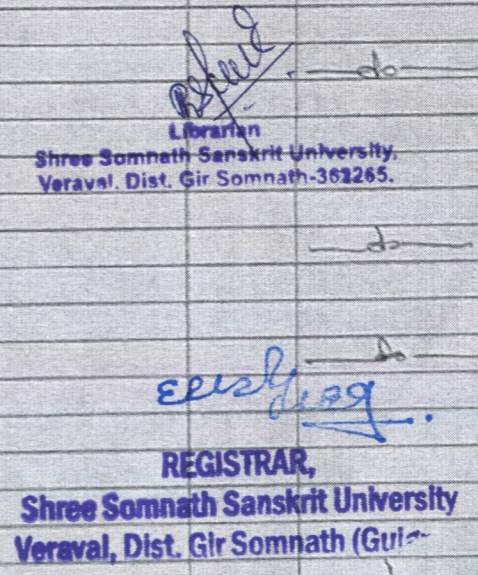 —do—
Librarian
Shree Somnath Sanskrit University,
Veraval. Dist. Gir Somnath-362265.
—do—
—do—
REGISTRAR,
Shree Somnath Sanskrit University
Veraval, Dist. Gir Somnath (Guj